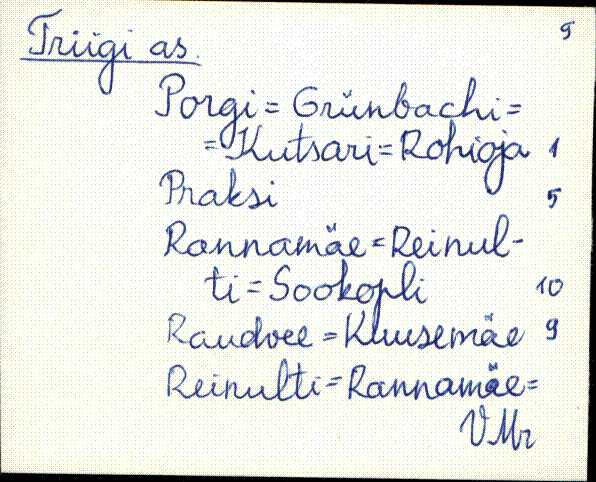 5
Triigi as.
Porgi = Grünbachi =
= Kutsari = Rohioja 1
Praksi 5
Rannamäe = Reinul-
ti = Sookopli 10
Raudvee = Kuusemäe 9
Reinulti = Rannamäe =
VMr